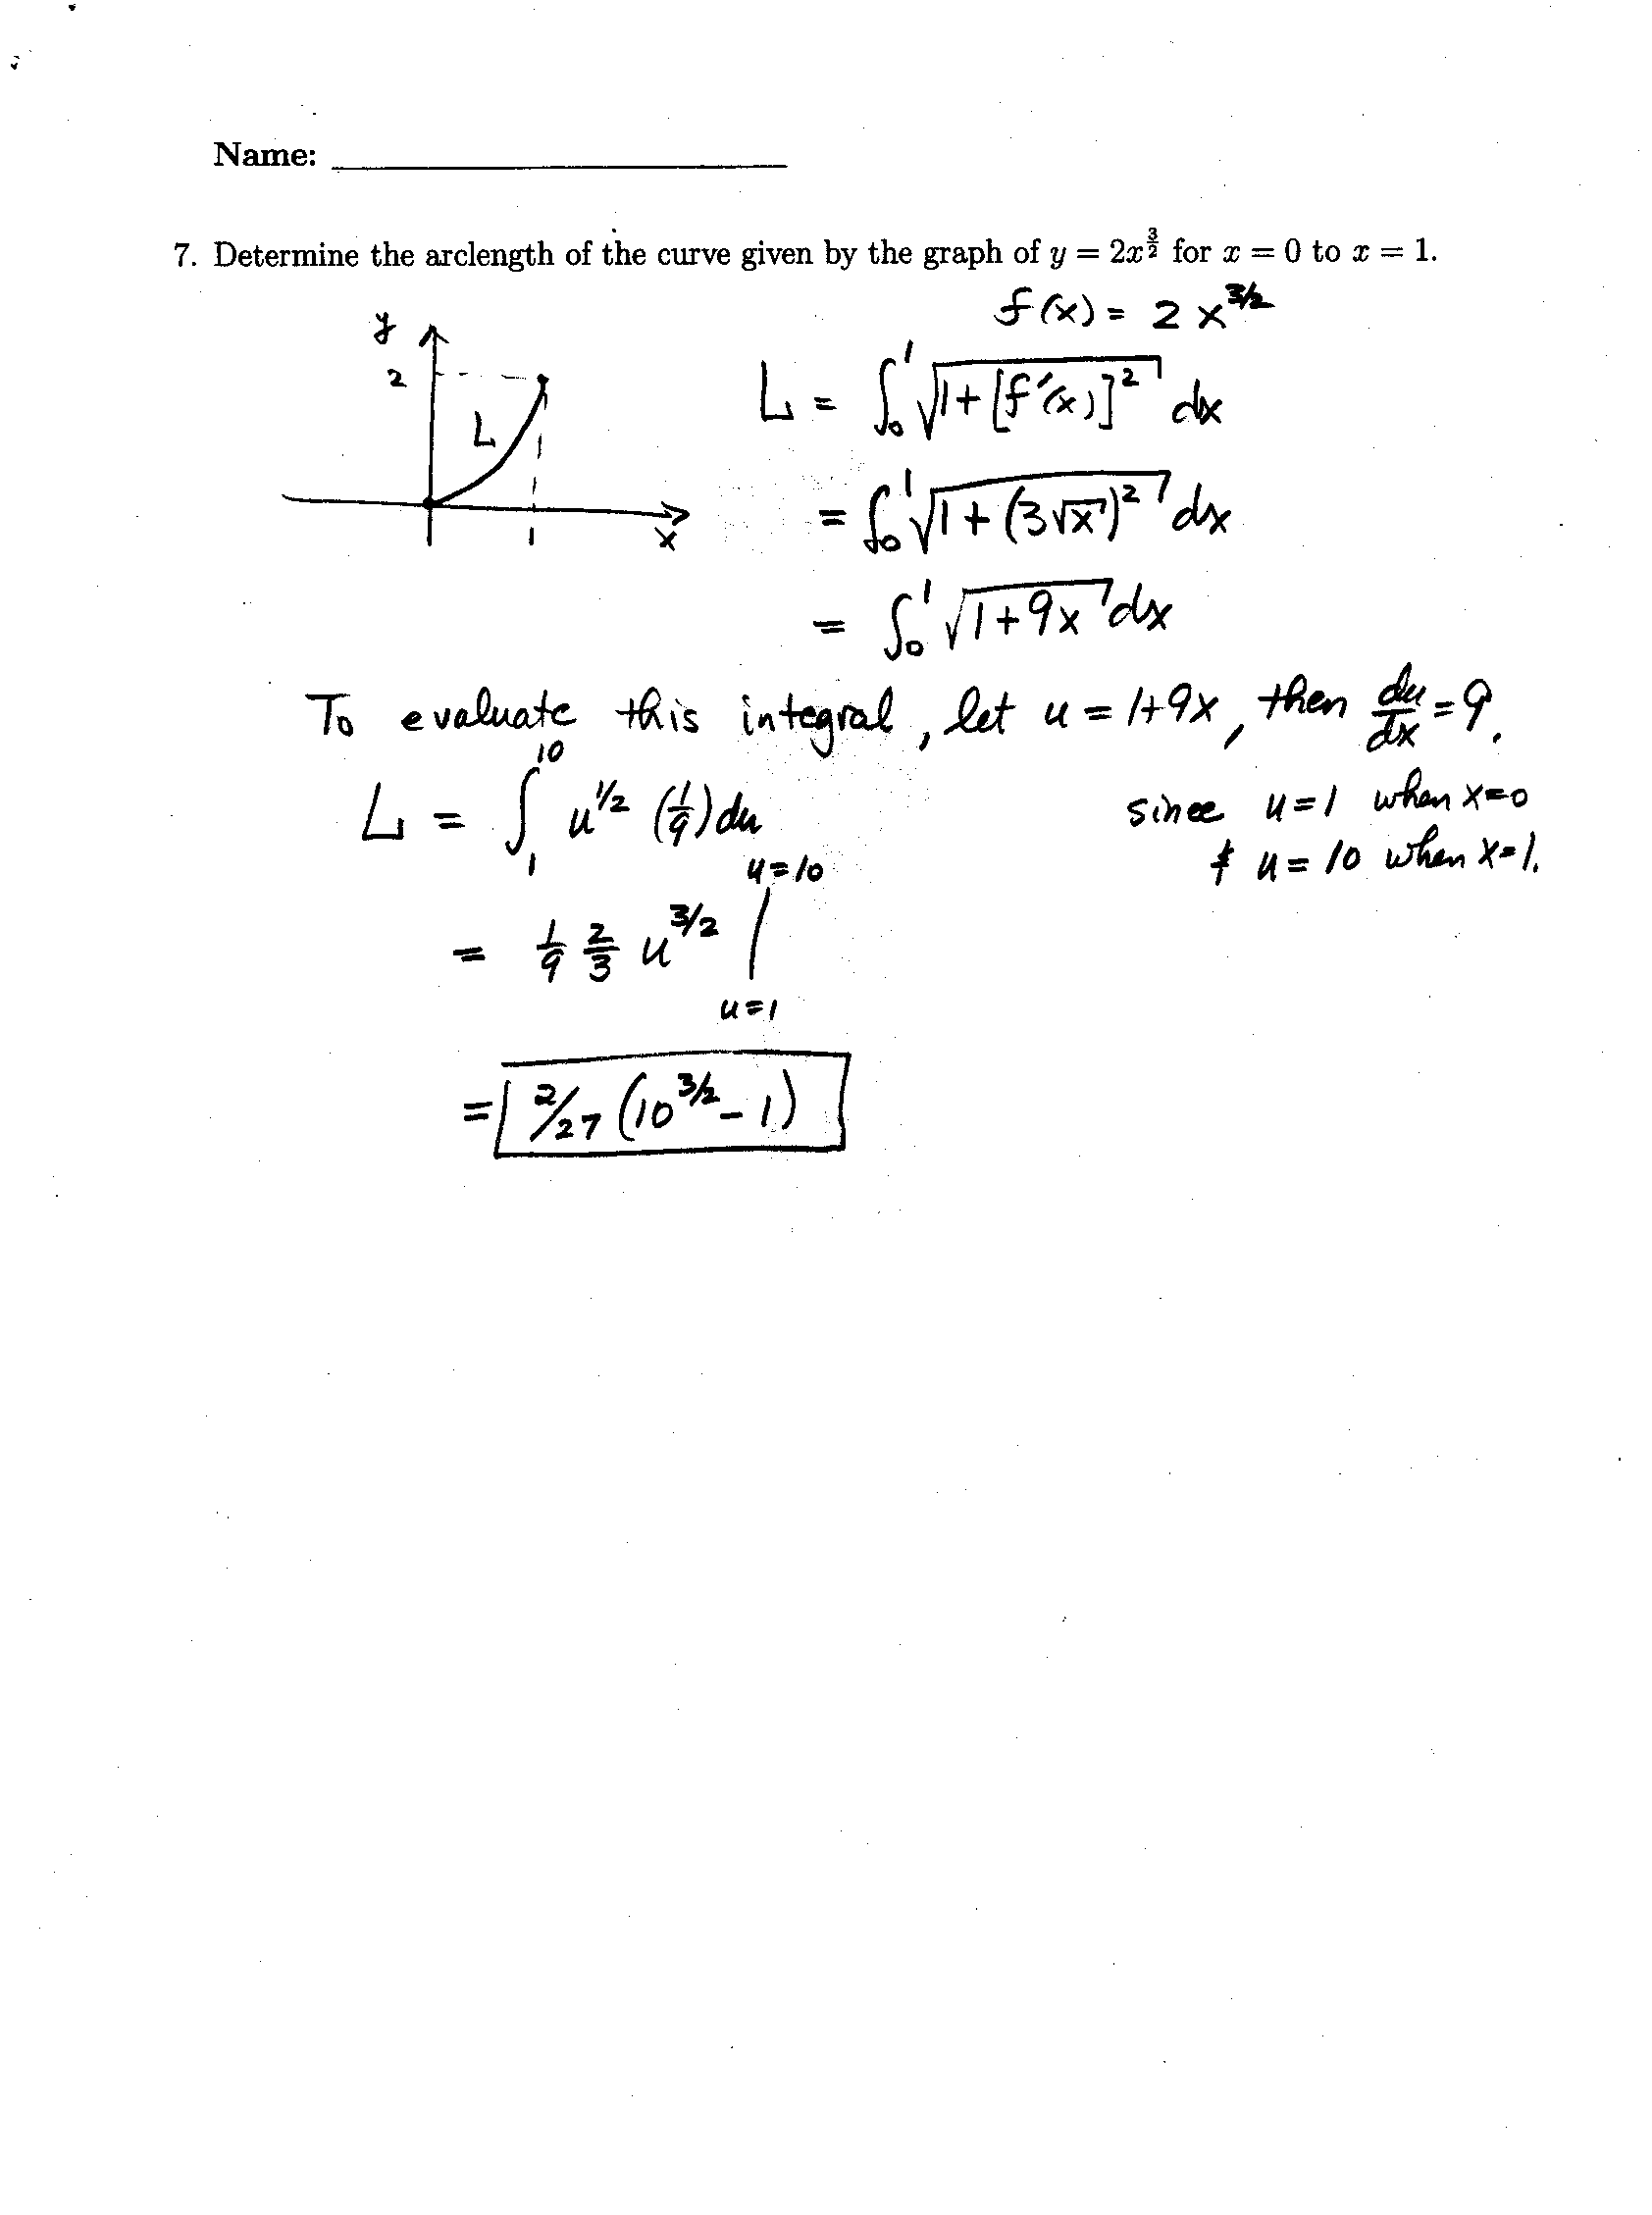 Name:
7. Determine the arclength of the curve given by the graph of y = 2x^{3/2} for x = 0 to x = 1.
f(x) = 2 x^{3/2}
y
2
L
1
x
L = ∫_0^1 √(1 + [f'(x)]^2) dx
= ∫_0^1 √(1 + (3√x)^2) dx
= ∫_0^1 √(1+9x) dx
To evaluate this integral, let u = 1+9x, then du/dx = 9.
L = ∫_1^{10} u^{1/2} (1/9) du
since u=1 when x=0
& u = 10 when x=1.
= 1/9 2/3 u^{3/2} |_{u=1}^{u=10}
= 2/27 (10^{3/2} - 1)